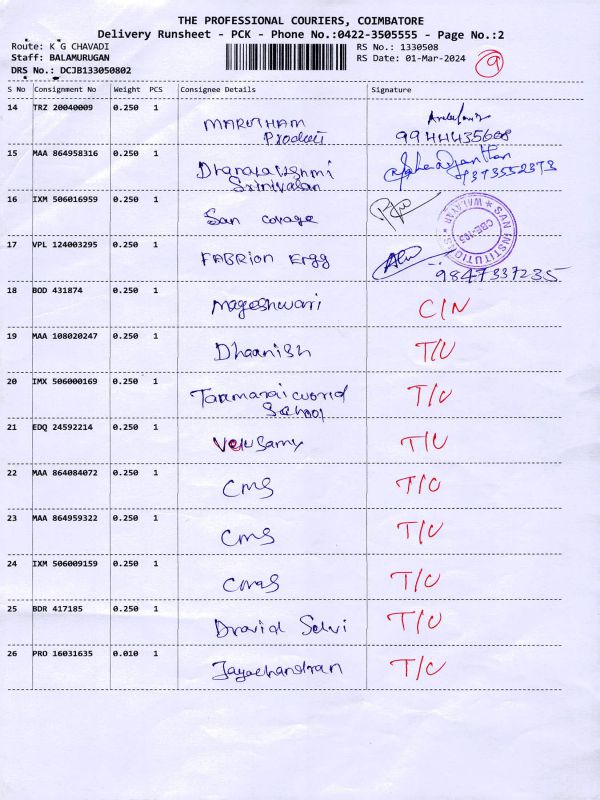 THE PROFESSIONAL COURIERS, COIMBATORE
Delivery Runsheet - PCK - Phone No.:0422-3505555 - Page No.:2
Route: K G CHAVADI RS No.: 1330508
Staff: BALAMURUGAN RS Date: 01-Mar-2024 9
DRS No.: DCJB133050802
S No Consignment No Weight PCS Consignee Details Signature
14 TRZ 20040009 0.250 1
MARUTHAM
Product 9944435608
15 MAA 864958316 0.250 1
Srinivalan 9373552373
16 IXM 506016959 0.250 1
San covage
SAN INSTITUTIONS
WALAYAR
CBE-105
17 VPL 124003295 0.250 1
FABRION Ergg
9847337235
18 BOD 431874 0.250 1
Mageshwari C/N
19 MAA 108020247 0.250 1
Dhaanish T/U
20 IMX 506000169 0.250 1
world T/U
School
21 EDQ 24592214 0.250 1
Velusamy T/U
22 MAA 864084072 0.250 1
CMS T/U
23 MAA 864959322 0.250 1
CMS T/U
24 IXM 506009159 0.250 1
T/U
25 BDR 417185 0.250 1
Dravid Selvi T/U
26 PRO 16031635 0.010 1
Jayachandran T/U